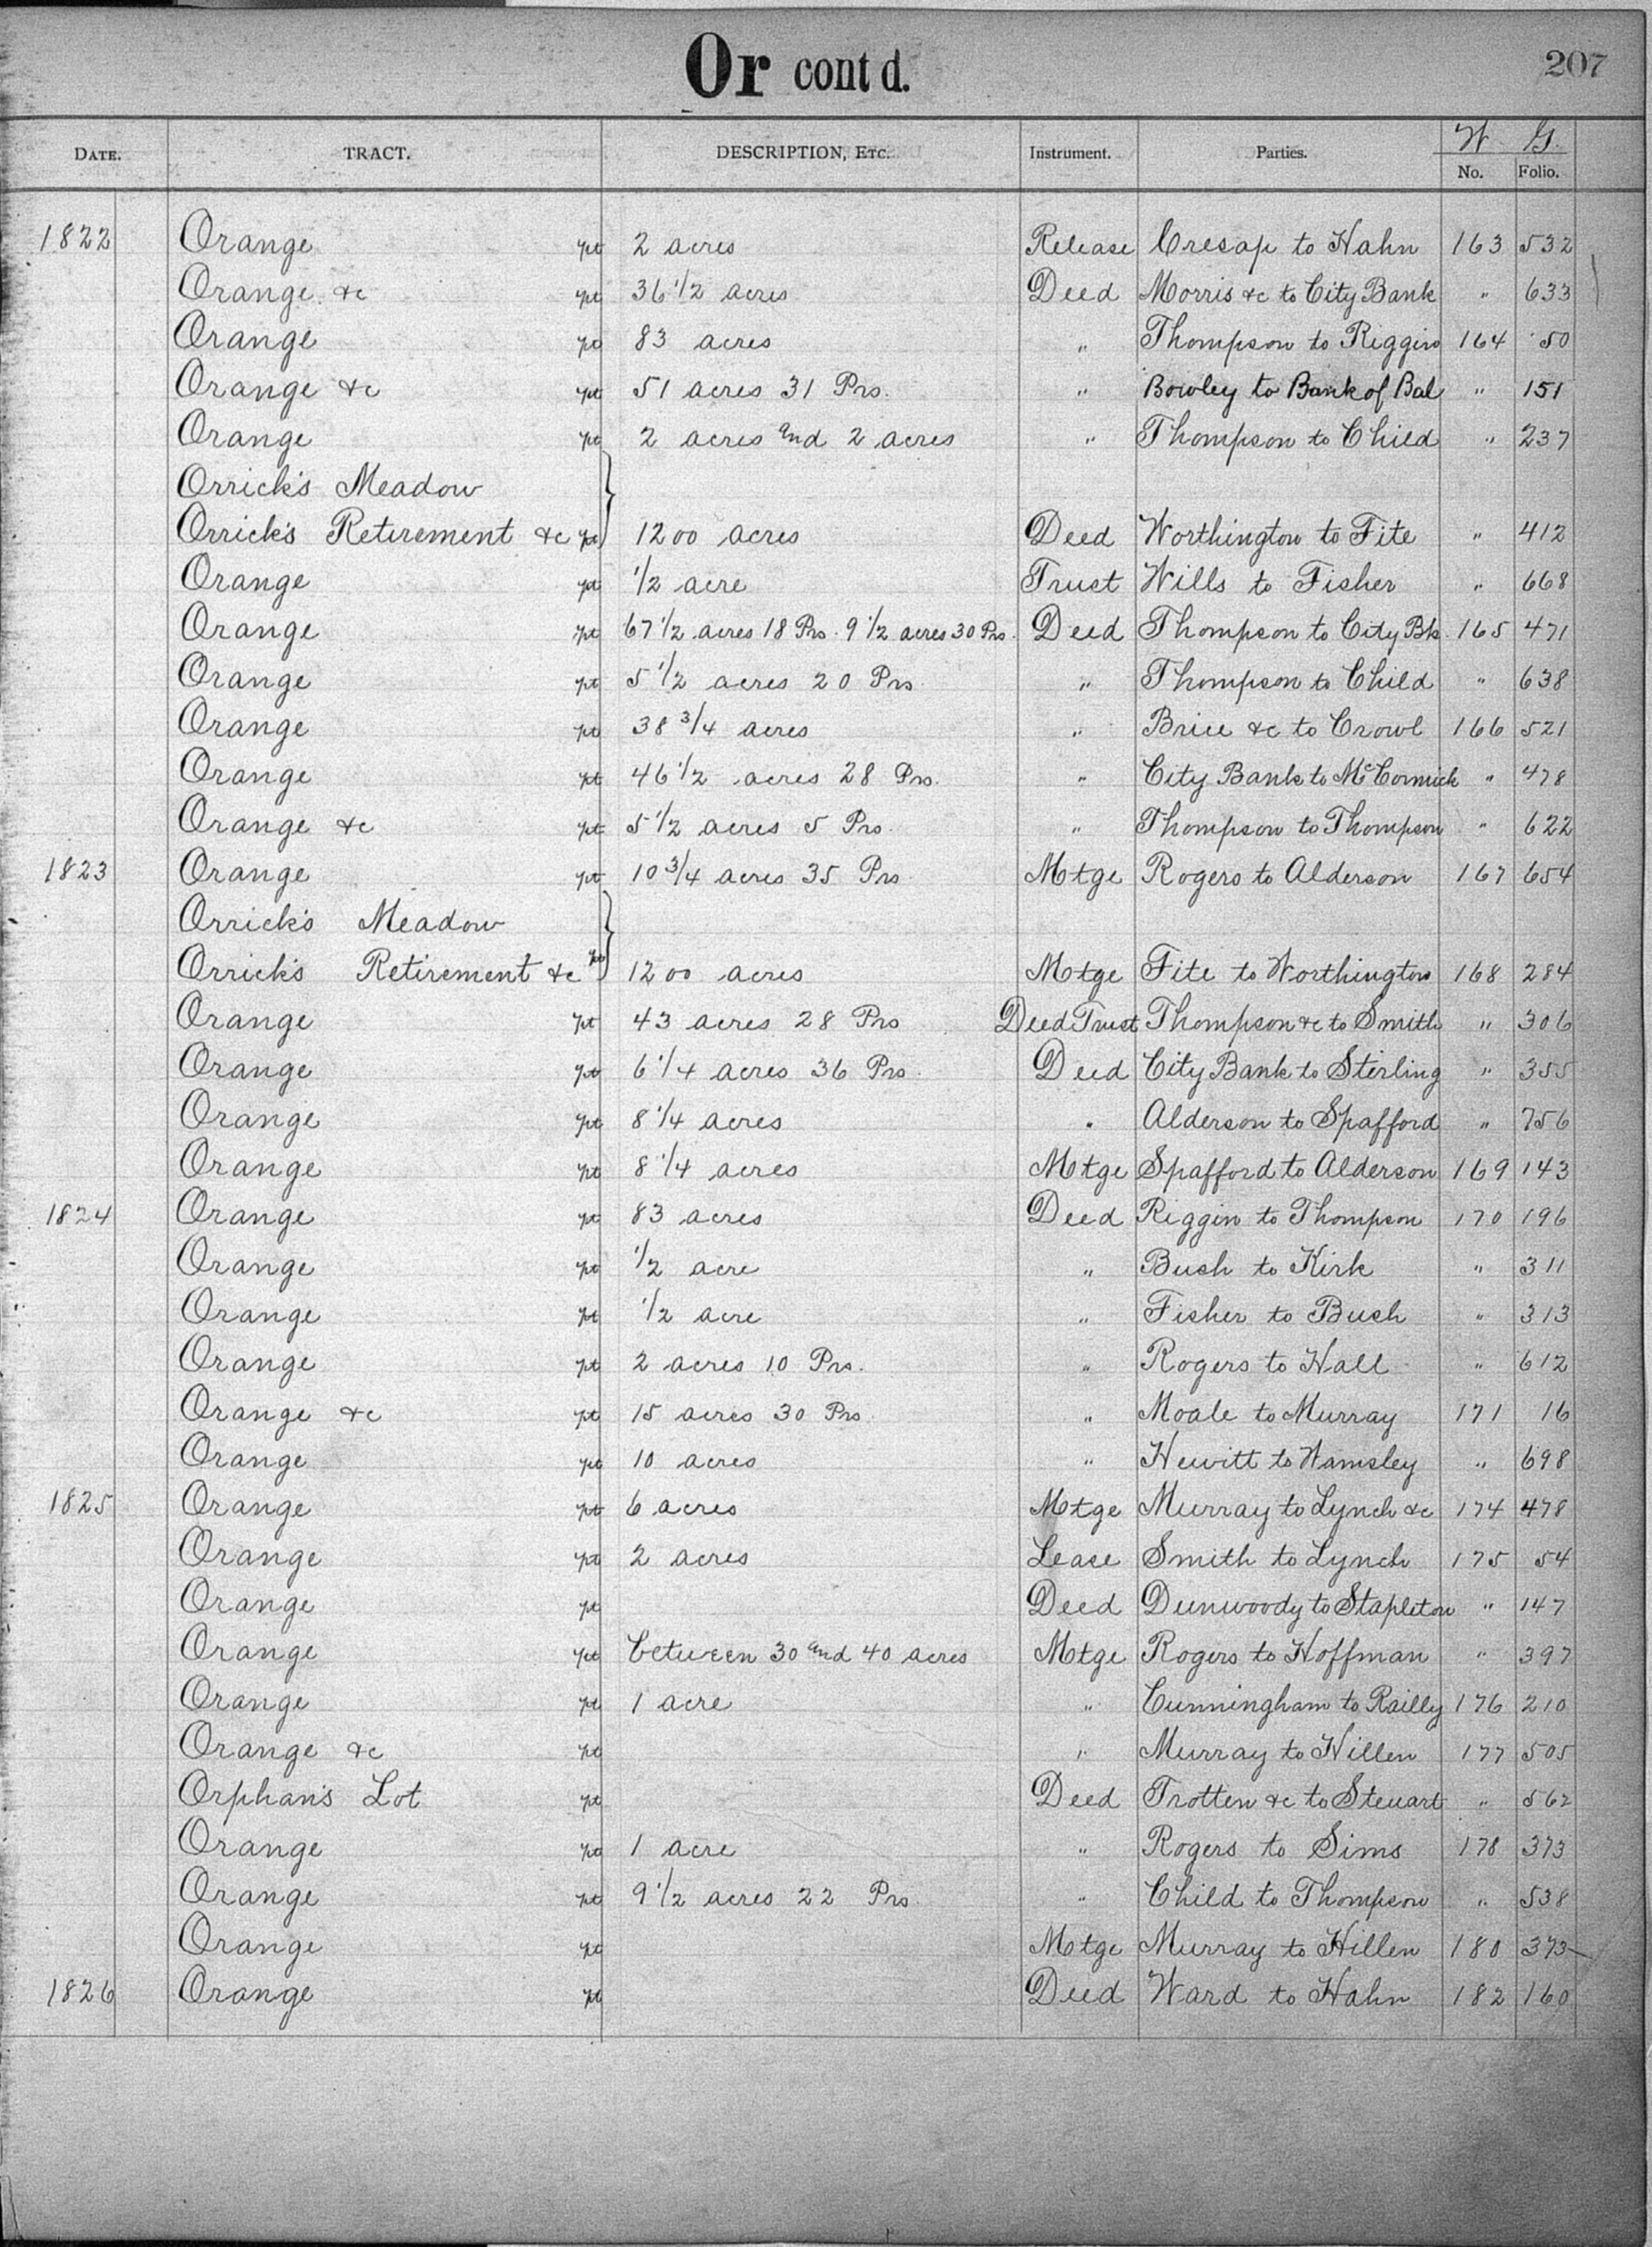 Or cont d.
207
DATE. TRACT. DESCRIPTION, ETC. Instrument. Parties. W G. No. Folio.
1822 Orange pt 2 acres Release Cresap to Hahn 163 532
Orange &c pt 36 1/2 acres Deed Morris &c to City Bank " 633
Orange pt 83 acres " Thompson to Riggin 164 50
Orange &c pt 51 acres 31 Prs. " Bowley to Bank of Bal " 151
Orange pt 2 acres and 2 acres " Thompson to Child " 237
Orrick's Meadow
Orrick's Retirement &c pt 1200 acres Deed Worthington to Fite " 412
Orange pt 1/2 acre Trust Wills to Fisher " 668
Orange pt 67 1/2 acres 18 Prs. 9 1/2 acres 30 Prs. Deed Thompson to City Bk. 165 471
Orange pt 5 1/2 acres 20 Prs " Thompson to Child " 638
Orange pt 38 3/4 acres " Brice &c to Crowl 166 521
Orange pt 46 1/2 acres 28 Prs. " City Bank to McCormick " 478
Orange &c pt 5 1/2 acres 5 Prs. " Thompson to Thompson " 622
1823 Orange pt 10 3/4 acres 35 Prs Mtge Rogers to Alderson 167 654
Orrick's Meadow
Orrick's Retirement &c pt 1200 acres Mtge Fite to Worthington 168 284
Orange pt 43 acres 28 Prs Deed Trust Thompson &c to Smith " 306
Orange pt 6 1/4 acres 36 Prs. Deed City Bank to Sterling " 355
Orange pt 8 1/4 acres " Alderson to Spafford " 756
Orange pt 8 1/4 acres Mtge Spafford to Alderson 169 143
1824 Orange pt 83 acres Deed Riggin to Thompson 170 196
Orange pt 1/2 acre " Bush to Kirk " 311
Orange pt 1/2 acre " Fisher to Bush " 313
Orange pt 2 acres 10 Prs. " Rogers to Hall " 612
Orange &c pt 15 acres 30 Prs. " Moale to Murray 171 16
Orange pt 10 acres " Hewitt to Wamsley " 698
1825 Orange pt 6 acres Mtge Murray to Lynch &c 174 478
Orange pt 2 acres Lease Smith to Lynch 175 54
Orange pt Deed Dunwoody to Stapleton " 147
Orange pt between 30 and 40 acres Mtge Rogers to Hoffman " 397
Orange pt 1 acre " Cunningham to Railly 176 210
Orange &c pt " Murray to Hillen 177 505
Orphan's Lot pt Deed Trotten &c to Steuart " 562
Orange pt 1 acre " Rogers to Sims 178 373
Orange pt 9 1/2 acres 22 Prs " Child to Thompson " 538
Orange pt Mtge Murray to Hillen 180 373
1826 Orange pt Deed Ward to Hahn 182 160